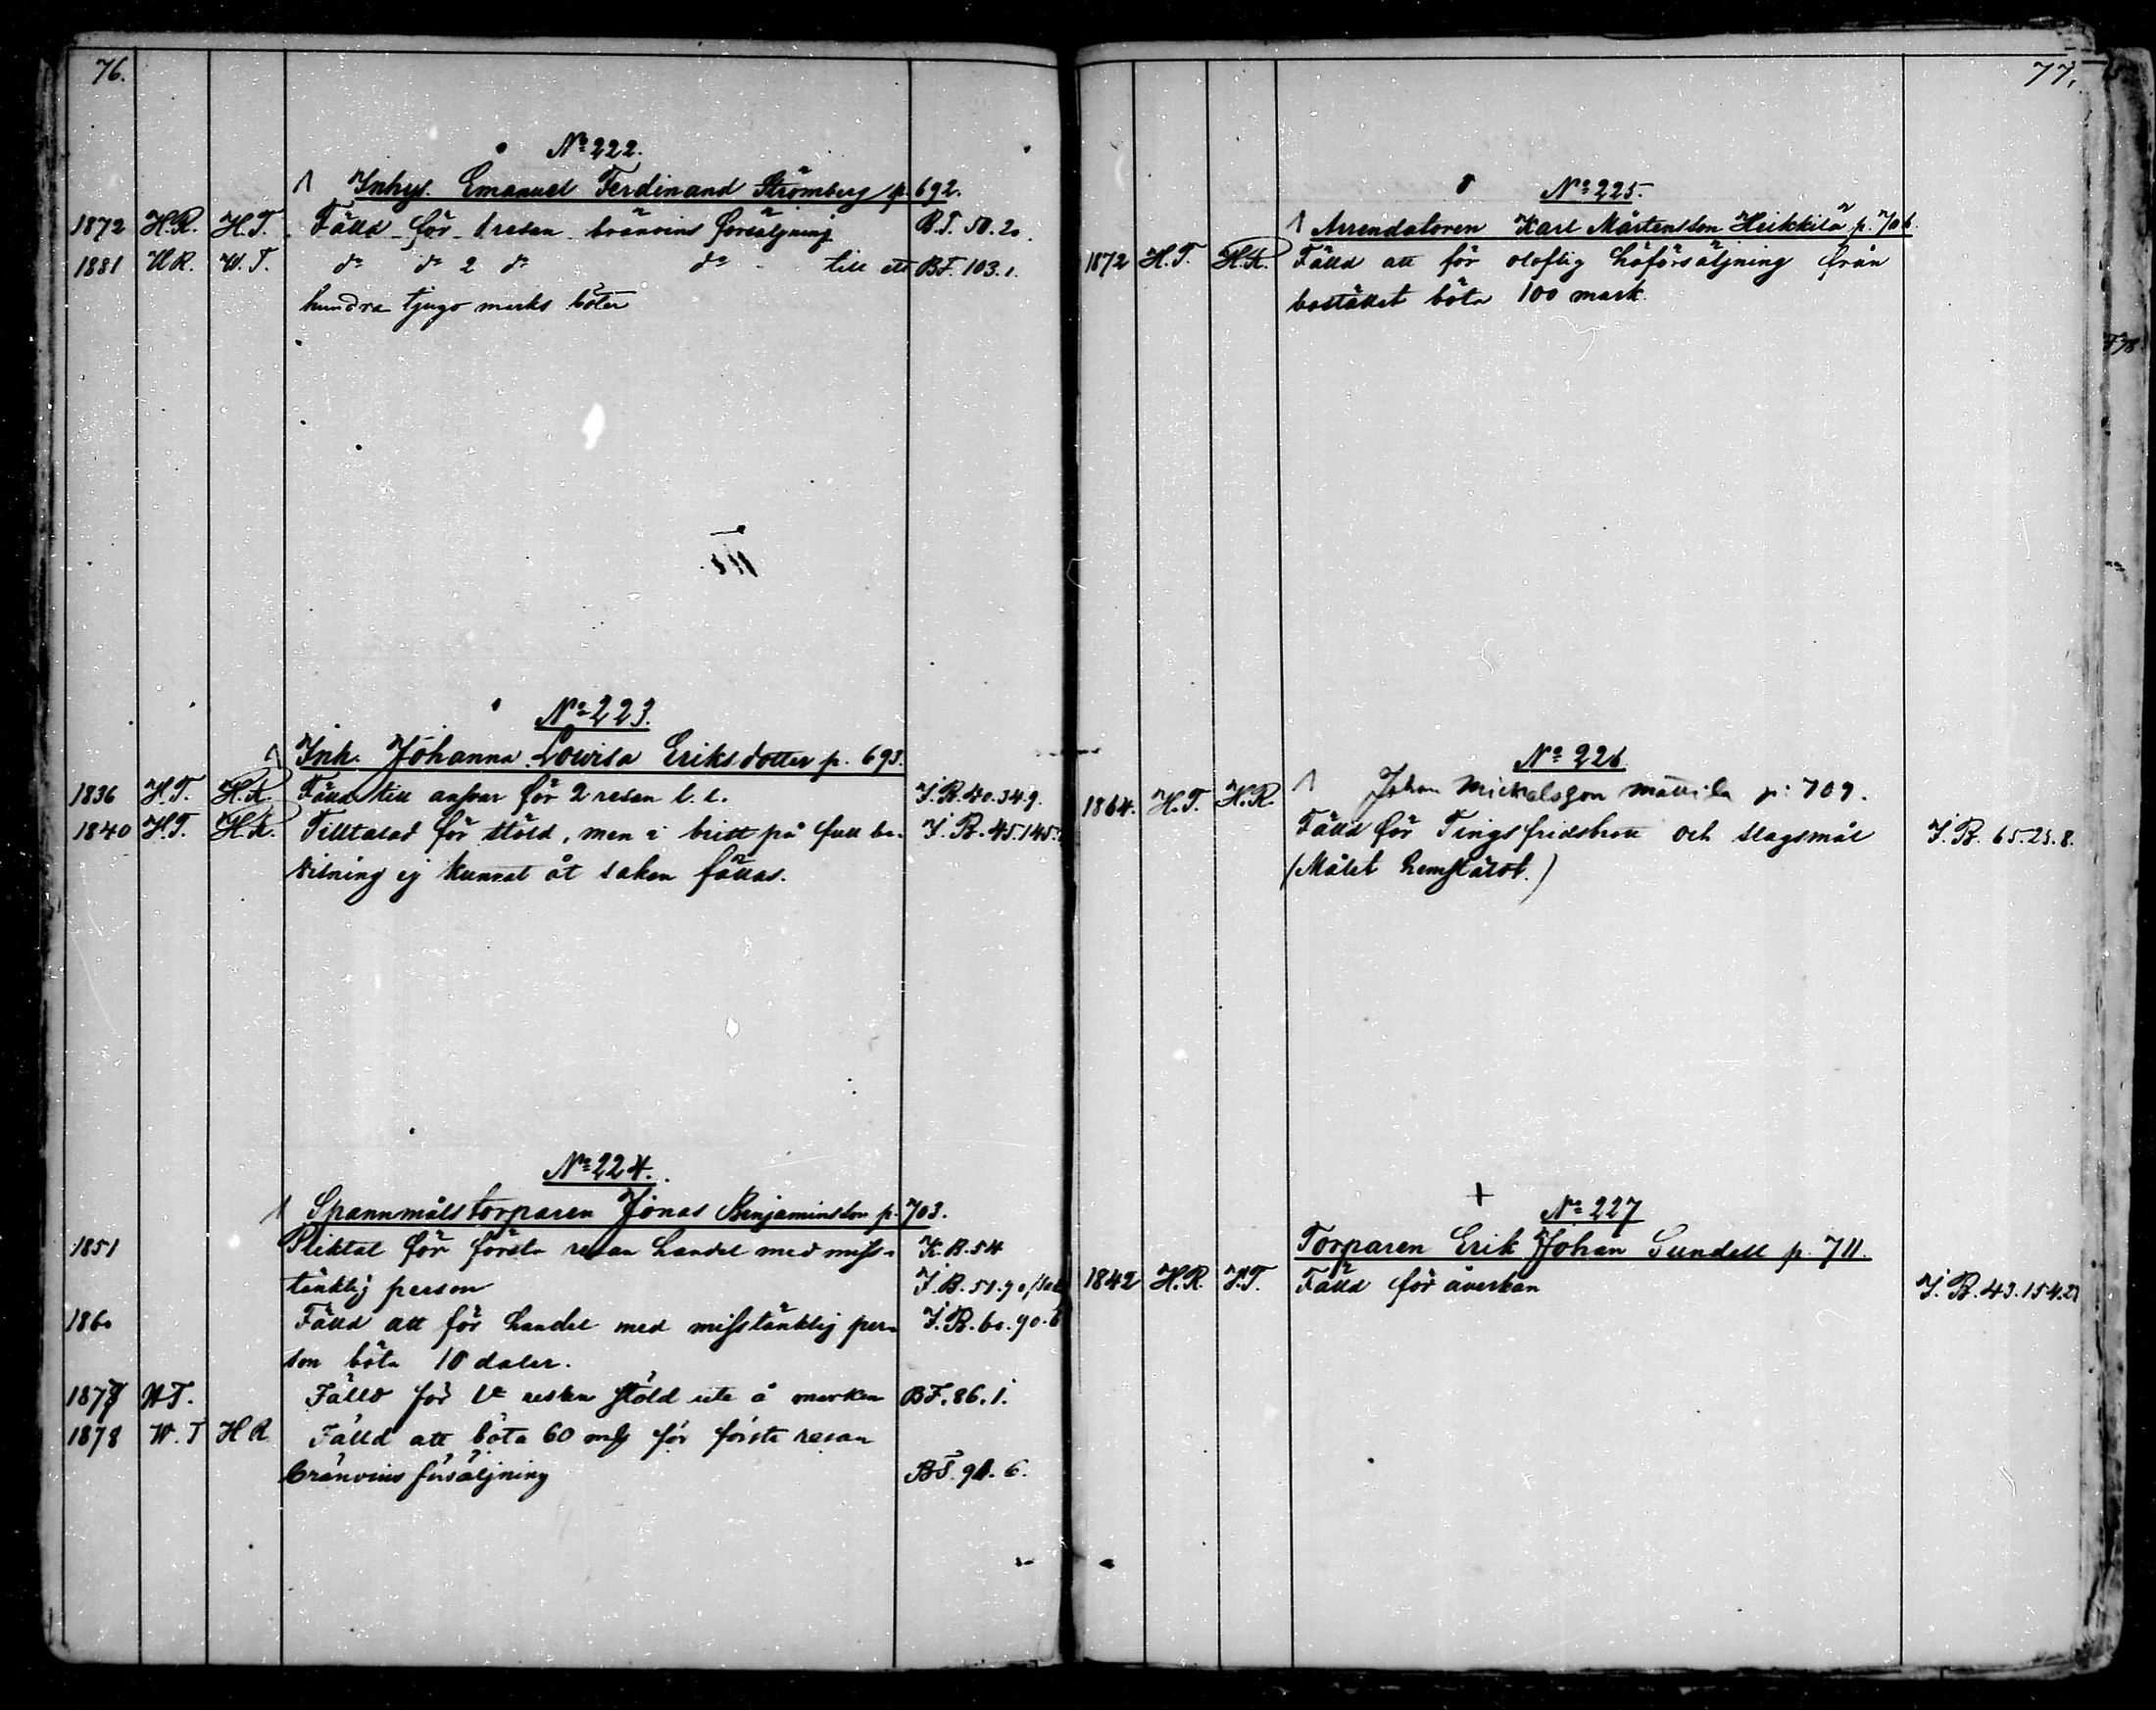 76.
No 222.
Inhys. Emanuel Ferdinand Strömberg p. 692.
1872 H.R. H.T. Fälld för 1 resan bränvins försäljning B.F. 50.20.
1881 H.R. W.T. do do 2 do do till ett B.F. 103.1.
hundra tjugo marks böter
No 223.
Inh. Johanna Lowisa Eriksdotter p. 693.
1836 H.T. H.R. Fälld till ansvar för 2 resan l. l. S.B. 40.34.9.
1840 H.T. H.R. Tilltalad för stöld, men i brist på full be- S.B. 45.145.
visning ej kunnat åt saken fällas.
No 224.
Spannmålstorparen Jonas Benjaminsson p. 703.
1851 Pliktat för första resan handel med miss- K.B. 54
tänklig person S.B. 51.90
1860 Fälld att för handel med misstänklig per- S.B. 60.90.6
son böta 10 daler.
1877 W.T. Fälld för 1a resan stöld ute å marken B.F. 86.1.
1878 W.T H R Fälld att böta 60 mk för första resan
bränvins försäljning B.F. 91.6.
77.
No 225.
Arrendatoren Karl Mårtensson Heikkilä p. 706.
1872 H.T. H.R. Fälld att för oloflig höförsäljning från
bostället böta 100 mark.
No 226
Johan Mickelsson Mattila p. 709.
1864. H.T. H.R.
Fälld för Tingsfridsbrott och slagsmål S.B. 65.25.8.
(Målet hemstäldt.)
No 227
Torparen Erik Johan Sundell p. 711.
1842 H.R. S.T. Fälld för åverkan S.B. 43.154.